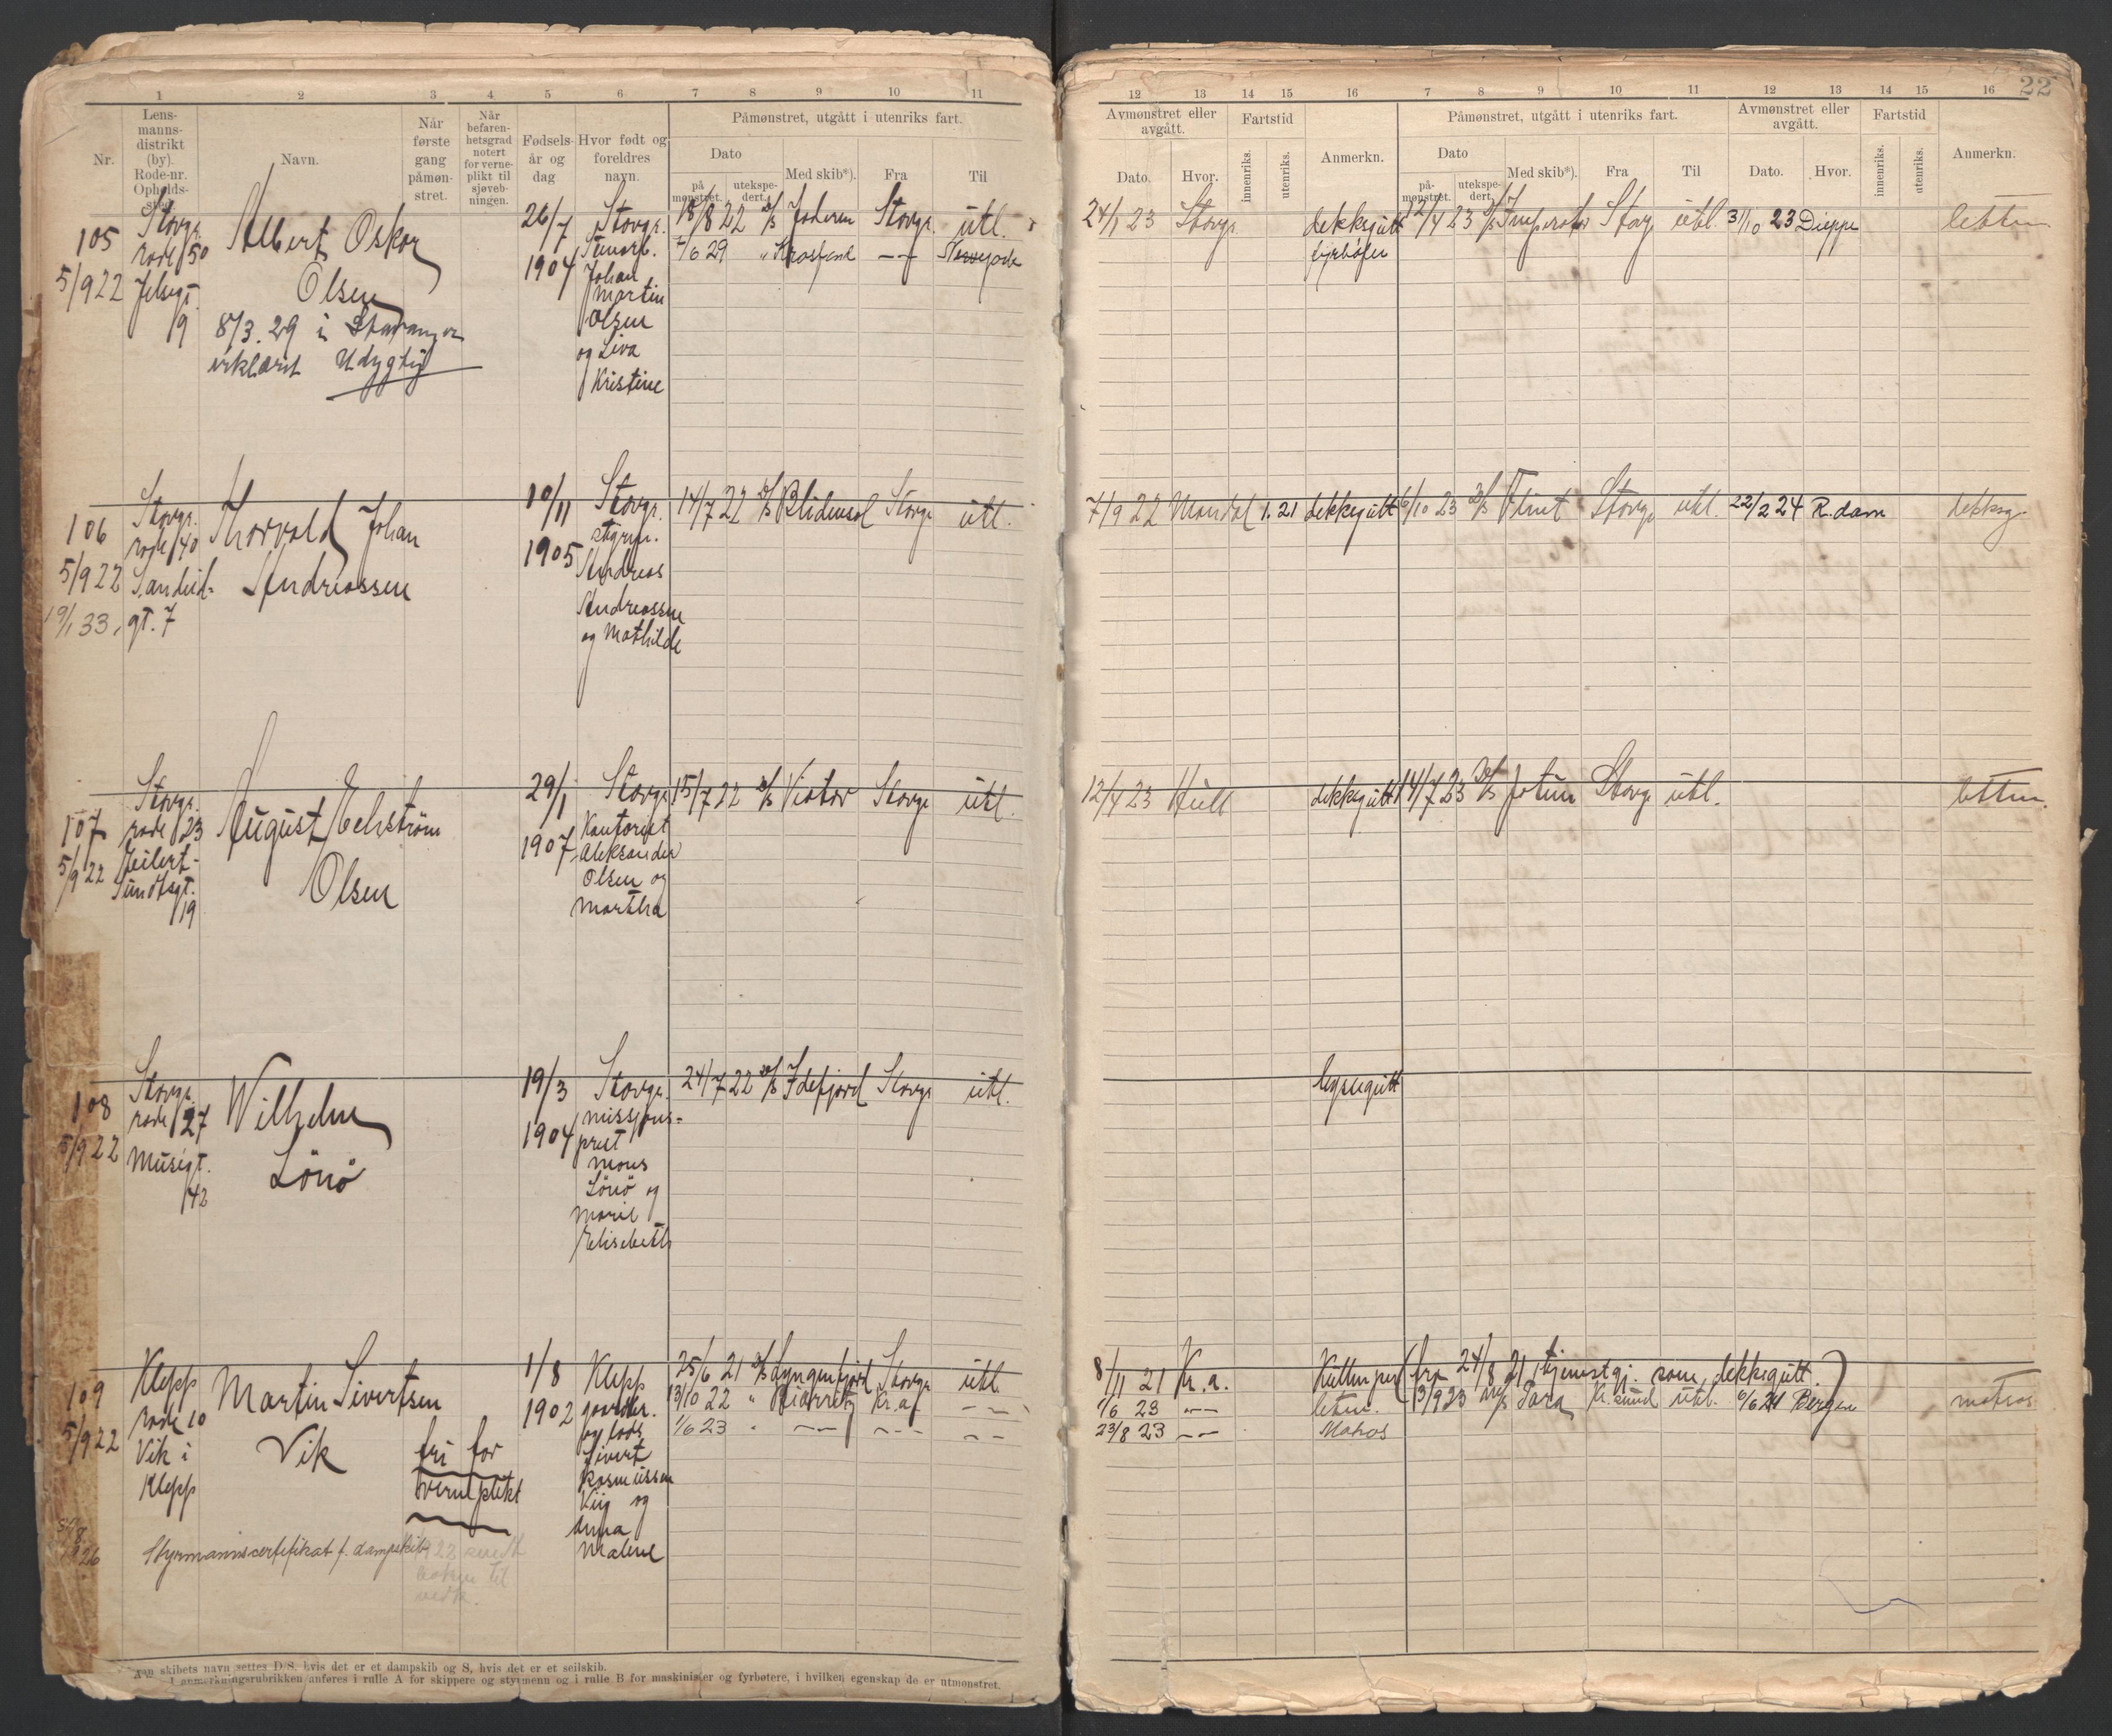 22
1 2 3 4 5 6 7 8 9 10 11
Nr.
Lens-
manns-
distrikt
(by).
Rode-nr.
Opholds-
sted.
Navn.
Når
første
gang
påmøn-
stret.
Når
befaren-
hetsgrad
notert
for verne-
plikt til
sjøveb-
ningen.
Fødsels-
år og
dag
Hvor født og
foreldres
navn.
Påmønstret, utgått i utenriks fart.
Dato
på
mønstret.
utekspe-
dert.
Med skib*).
Fra
Til
105
5/9 22
Stavgr.
rode 50
Jelsagt.
19
Albert Oskar
Olsen
8/3. 29 i Stavanger
erklært Udygtig
26/7
1904
Stavgr.
Johan
Martin
Olsen
og Liva
Kristine
18/8 22 D/S Jæderen Stavgr. utl.
1/6 29 "
106
5/9 22
19/1 33.
Stavgr.
rode 40
Sandeid-
gt. 7
Thorvald Johan
Andreassen
10/11
1905
Stavgr.
Andreas
Andreassen
og Mathilde
14/7 22 D/S Blidensol Stavgr utl.
107
5/9 22
Stavgr.
rode 23
Eilert-
Sundtsgt.
19
August Echström
Olsen
29/1
1907
Stavgr
Kontorist
Aleksander
Olsen og
Martha
15/7 22 D/S Viator Stavgr utl.
108
5/9 22
Stavgr.
rode 27
Muségt.
42
Wilhelm
Lönö
19/3
1904
Stavgr.
missjons-
prest
Mons
Lönö og
Marie
Elisabeth
24/7 22 D/S Idefjord Stavgr utl.
109
5/9 22
Klepp
rode 10
Vik i
Klepp
Martin Sivertsen
Vik
fri for
verneplikt
Styrmannscertifikat f. dampskib
1/8
1902
Klepp
gaardbr.
og lods
Sivert
Rasmussen
Viig og
Anna
Malene
25/6 21 D/S Lyngenfjord Stavgr utl.
13/10 22 " Biarritz Kr.a — —
1/6 23 " — — — — — —
skibets navn settes D/S, hvis det er et dampskib og S, hvis det er et seilskib.
I anmerkningsrubrikken anføres i rulle A for skippere og styrmenn og i rulle B for maskinister og fyrbøtere, i hvilken egenskap de er utmønstret.
12 13 14 15 16 7 8 9 10 11 12 13 14 15 16
Avmønstret eller
avgått.
Dato.
Hvor.
Fartstid
innenriks.
utenriks.
Anmerkn.
Påmønstret, utgått i utenriks fart.
Dato
på-
mønstret.
utekspe-
dert.
Med skib*).
Fra
Til
Avmønstret eller
avgått.
Dato.
Hvor.
Fartstid
innenriks.
utenriks.
Anmerkn.
24/1 23 Stavgr dekksgutt 12/4 23 D/S Imperator Stavg utl. 31/10 23 Dieppe lettm.
fyrbøter
7/9 22 Mandal 1. 21 dekksgutt 6/10 23 D/S Flint Stavgr utl. 22/2 24 R.dam dekksg.
12/4 23 Hull dekksgutt 14/7 23 D/S Jotun Stavgr utl. lettm.
byssegutt
8/11 21 Kr.a. Kullemper (fra 24/8 21 tjenestgj. som dekksgutt.)
1/6 23 — — letm. 13/9 23 M/S Tara Kr.sund utl. 6/6 24 Bergen matros
23/8 23 — — Matros